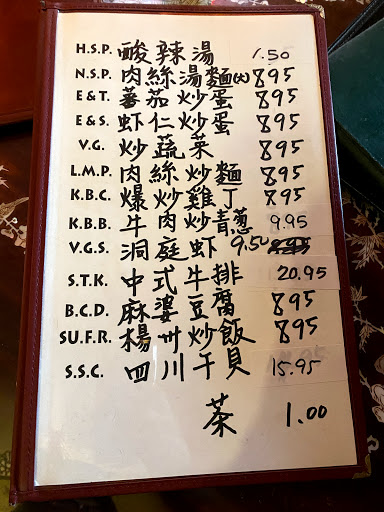 H.S.P. 酸辣湯 1.50
N.S.P. 肉絲湯麵(大) 8.95
E&T. 蕃茄炒蛋 8.95
E&S. 虾仁炒蛋 8.95
V.G. 炒蔬菜 8.95
L.M.P. 肉絲炒麵 8.95
K.B.C. 爆炒雞丁 8.95
K.B.B. 牛肉炒青葱 9.95
V.G.S. 洞庭虾 9.50
S.T.K. 中式牛排 20.95
B.C.D. 麻婆豆腐 8.95
SU.F.R. 楊州炒飯 8.95
S.S.C. 四川干貝 15.95
茶 1.00